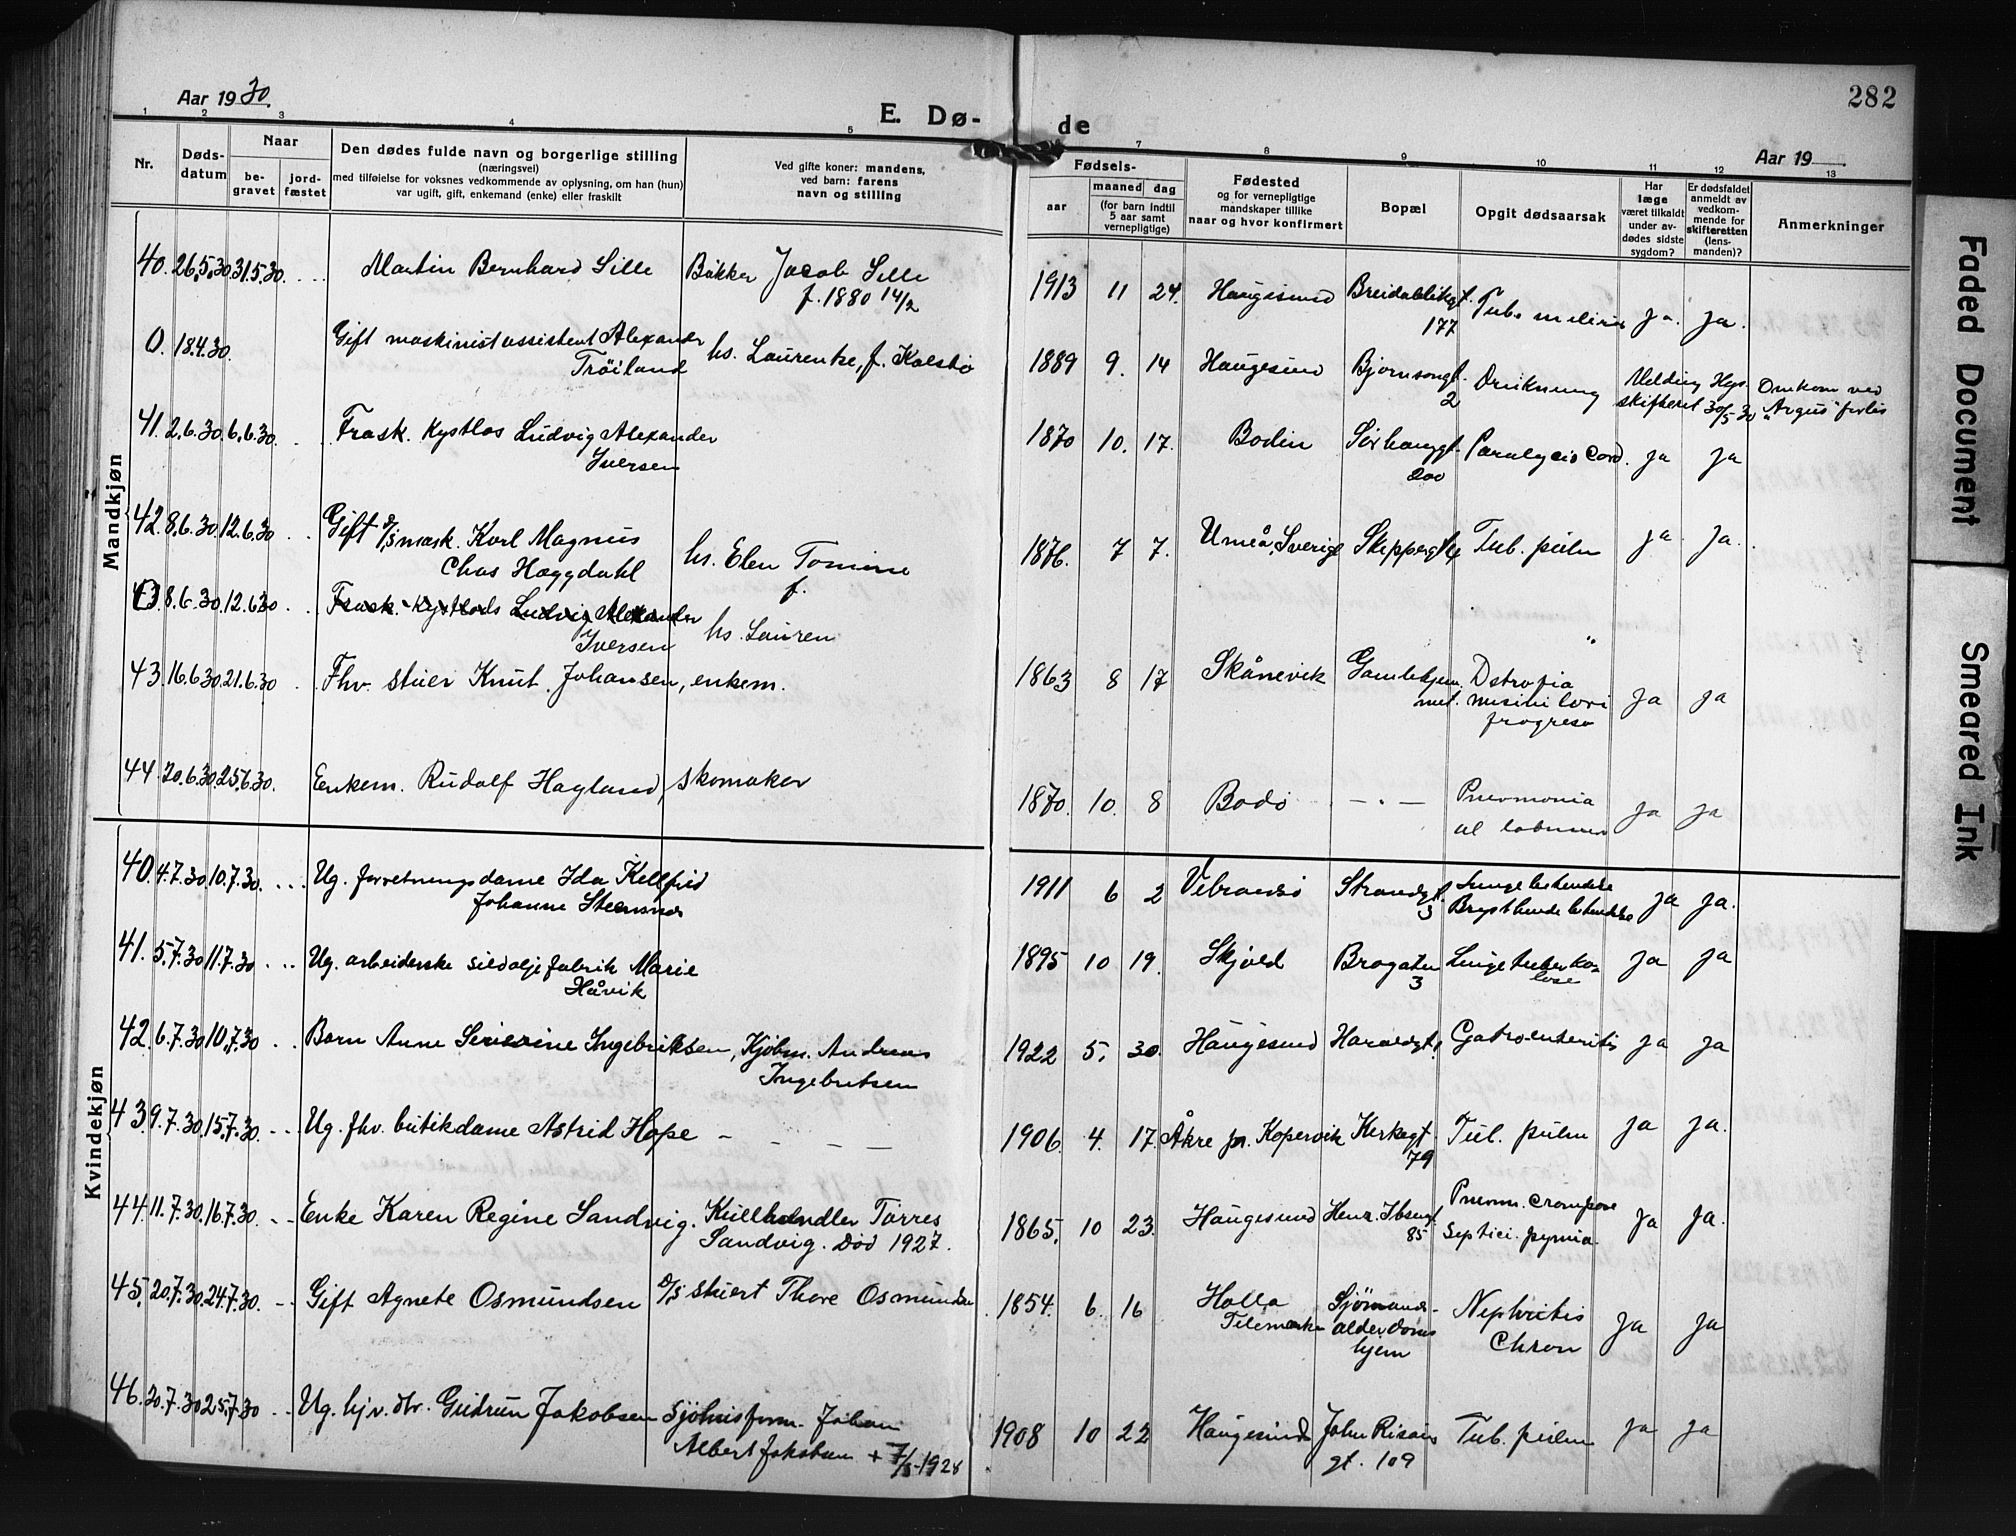 282
Aar 1930.
E. Dø-
de
Aar 19
1 2 3 4 5
7 8 9 10 11 12 13
Nr.
Døds-
datum
Naar
be-
gravet
jord-
fæstet
Den dødes fulde navn og borgerlige stilling
(næringsvei)
med tilføielse for voksnes vedkommende av oplysning, om han (hun)
var ugift, gift, enkemand (enke) eller fraskilt
Ved gifte koner: mandens,
ved barn: farens
navn og stilling
Fødsels-
aar
maaned
dag
(for barn indtil
5 aar samt
vernepligtige)
Fødested
og for vernepligtige
mandskaper tillike
naar og hvor konfirmert
Bopæl
Opgit dødsaarsak
Har
læge
været tilkaldt
under av-
dødes sidste
sygdom?
Er dødsfaldet
anmeldt av
vedkom-
mende for
skifteretten
(lens-
manden)?
Anmerkninger
Mandkjøn
40. 26.5.30. 31.5.30. Martin Bernhard Lille Bakker Jacob Lille
f. 1880 14/2
1913 11 24. Haugesund Breidablikgt.
177 Ja. Ja.
0. 18.4.30. Gift maskinistassistent Alexander
Trøiland hs. Laurentse, f. Kolstø
1889 9. 14 Haugesund Bjørnsongt.
2 Drukning Melding Hgs.
skifteret 30/5-30 Omkom ved
"Argus" forlis
41. 2.6.30. 6.6.30. Frask. Kystlos Ludvig Alexander
Iversen
1870 10. 17. Bodin Sørhauggt.
200 Paralysis Cord. Ja Ja
42. 8.6.30. 12.6.30. Gift D/S mask. Karl Magnus
Chas Hæggdahl hs. Elen Tomine
f.
1876. 7 7. Umeå, Sverige Tub. pulm Ja Ja.
43 8.6.30. 12.6.30 Frask. Kystlods Ludvig Alexander
Iversen hs. Lauren
"
43. 16.6.30. 21.6.30 Fhv. stuer Knut Johansen, enkem.
1863 8 17 Skånevik Gamlehjem
met. progress Ja Ja
44. 20.6.30. 25.6.30. Enkem. Rudolf Hagland, skomaker
1870. 10. 8 Bodø — " — Pneumonia Ja Ja
Kvindekjøn
40. 4.7.30. 10.7.30. Ug. forretningsdame Ida Kellfrid
Johanne Steensnes
1911 6 2 Vibrandsø Strandgt.
3 Lungebetendelse
Brysthindebetendelse Ja Ja.
41. 5.7.30 11.7.30. Ug. arbeiderske sildoljefabrik Marie
Håvik
1895 10 19. Skjold Brogaten
3 Lungetuberko-
lose Ja Ja
42. 6.7.30 10.7.30 Barn Anne Severine Ingebriksen, Kjøbm. Andreas
Ingebritsen
1922 5. 30. Haugesund Haraldgt. Gatroenteritis Ja Ja
43. 9.7.30. 15.7.30. Ug. fhv. butikdame Astrid Hope — — — —
1906. 4. 17. Åkre pr. Kopervik Kirkegt.
79 Tub. pulm Ja Ja.
44. 11.7.30. 16.7.30. Enke Karen Regine Sandvig. Kullhandler Tørres
Sandvig. Død 1927.
1865. 10 23. Haugesund Henr. Ibsengt.
85 Pneum. Crouposa
Septici. pymia. Ja Ja.
45. 20.7.30. 24.7.30. Gift Agnete Osmundsen D/S stuert Thore Osmundsen
1854. 6. 16 Holla
Telemarken Sjømands-
alderdoms
hjem Nephritis
Chron Ja Ja
46. 20.7.30 25.7.30 Ug. hj.v. dtr. Gudrun Jakobsen Sjøhusform. Johan
Albert Jakobsen + 7/5-1928
1908 10 22 Haugesund John Risøen
gt. 109 Tub. pulm Ja Ja
Faded Document
Smeared Ink